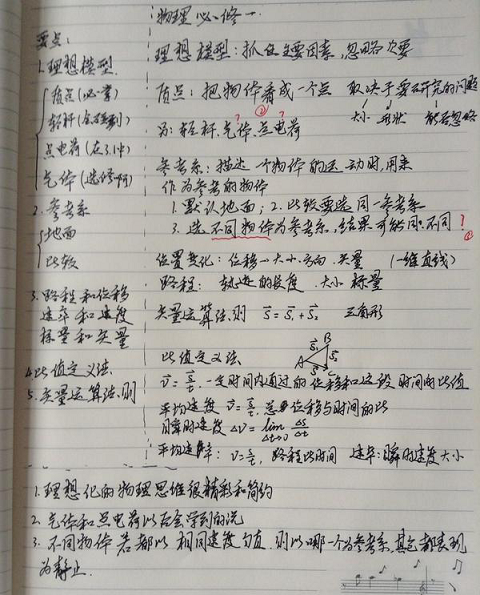 物理必修一
要点:
1.理想模型
质点(必一章)
轻杆(会碰到)
点电荷(在3.1中)
气体(选修啊)
2.参考系
地面
比较
3.路程和位移
速率和速度
标量和矢量
4.比值定义法
5.矢量运算法则
理想模型:抓住主要因素,忽略次要
质点:把物体看成一个点 取决于要研究的问题
大小 形状 能否忽略
为:轻杆.气体.点电荷
? ② ?
参考系:描述一个物体的运动时,用来
作为参考的物体
1.默认地面;2.比较要选同一参考系
3.选不同物体为参考系,结果可能同.不同 ?
位置变化:位移→大小.方向 矢量 (一维直线)
路程:轨迹的长度.大小 标量
矢量运算法则 S=S₁+S₂ 三角形
A B C S₁ S₂ S
比值定义法
v=s/t.一定时间内通过的位移和这段时间的比值
平均速度 v=s/t.总位移与时间的比
瞬时速度 Δv=lim Δt→0 Δs/Δt
平均速率:v=s/t,路程比时间 速率:瞬时速度大小
1.理想化的物理思维很精彩和简约
2.气体和点电荷以后会学到的说
3.不同物体若都以相同速度匀直.则以哪一个为参考系,其它都表现
为静止.